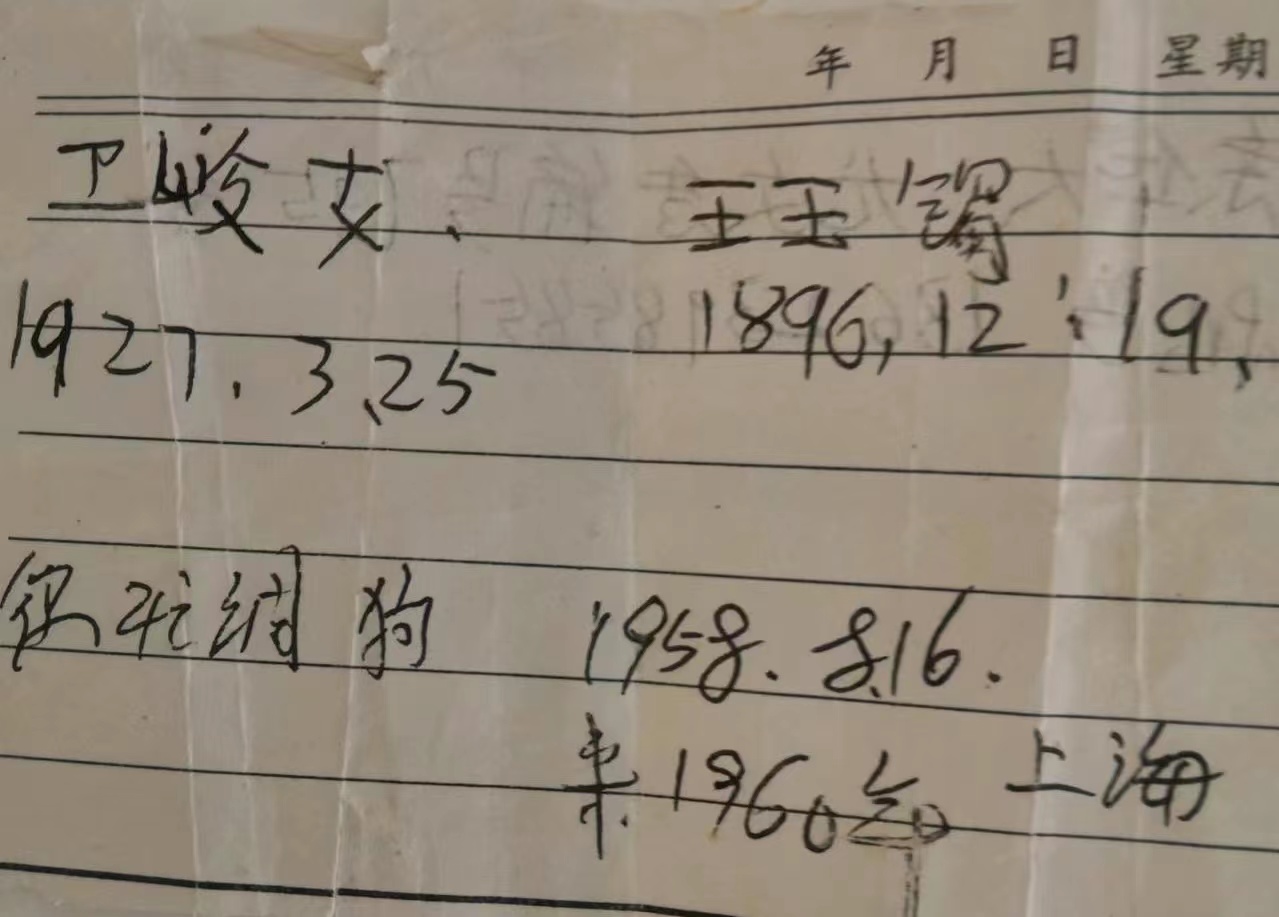 年 月 日 星期
卫岭女. 王玉
1927.3.25 1896,12.19.
狗 1958.8.16.
来.1960年 上海